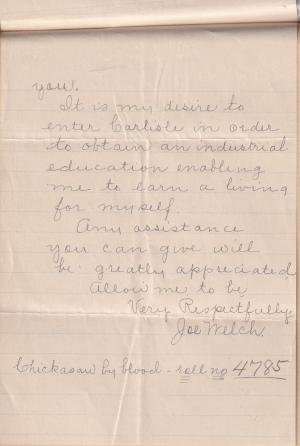 you.
It is my desire to
enter Carlisle in order
to obtain an industrial
education enabling
me to earn a living
for myself.
Any assistance
you can give will
be greatly appreciated
Allow me to be
Very Respectfully,
Joe Welch.
Chickasaw by blood - roll no 4785